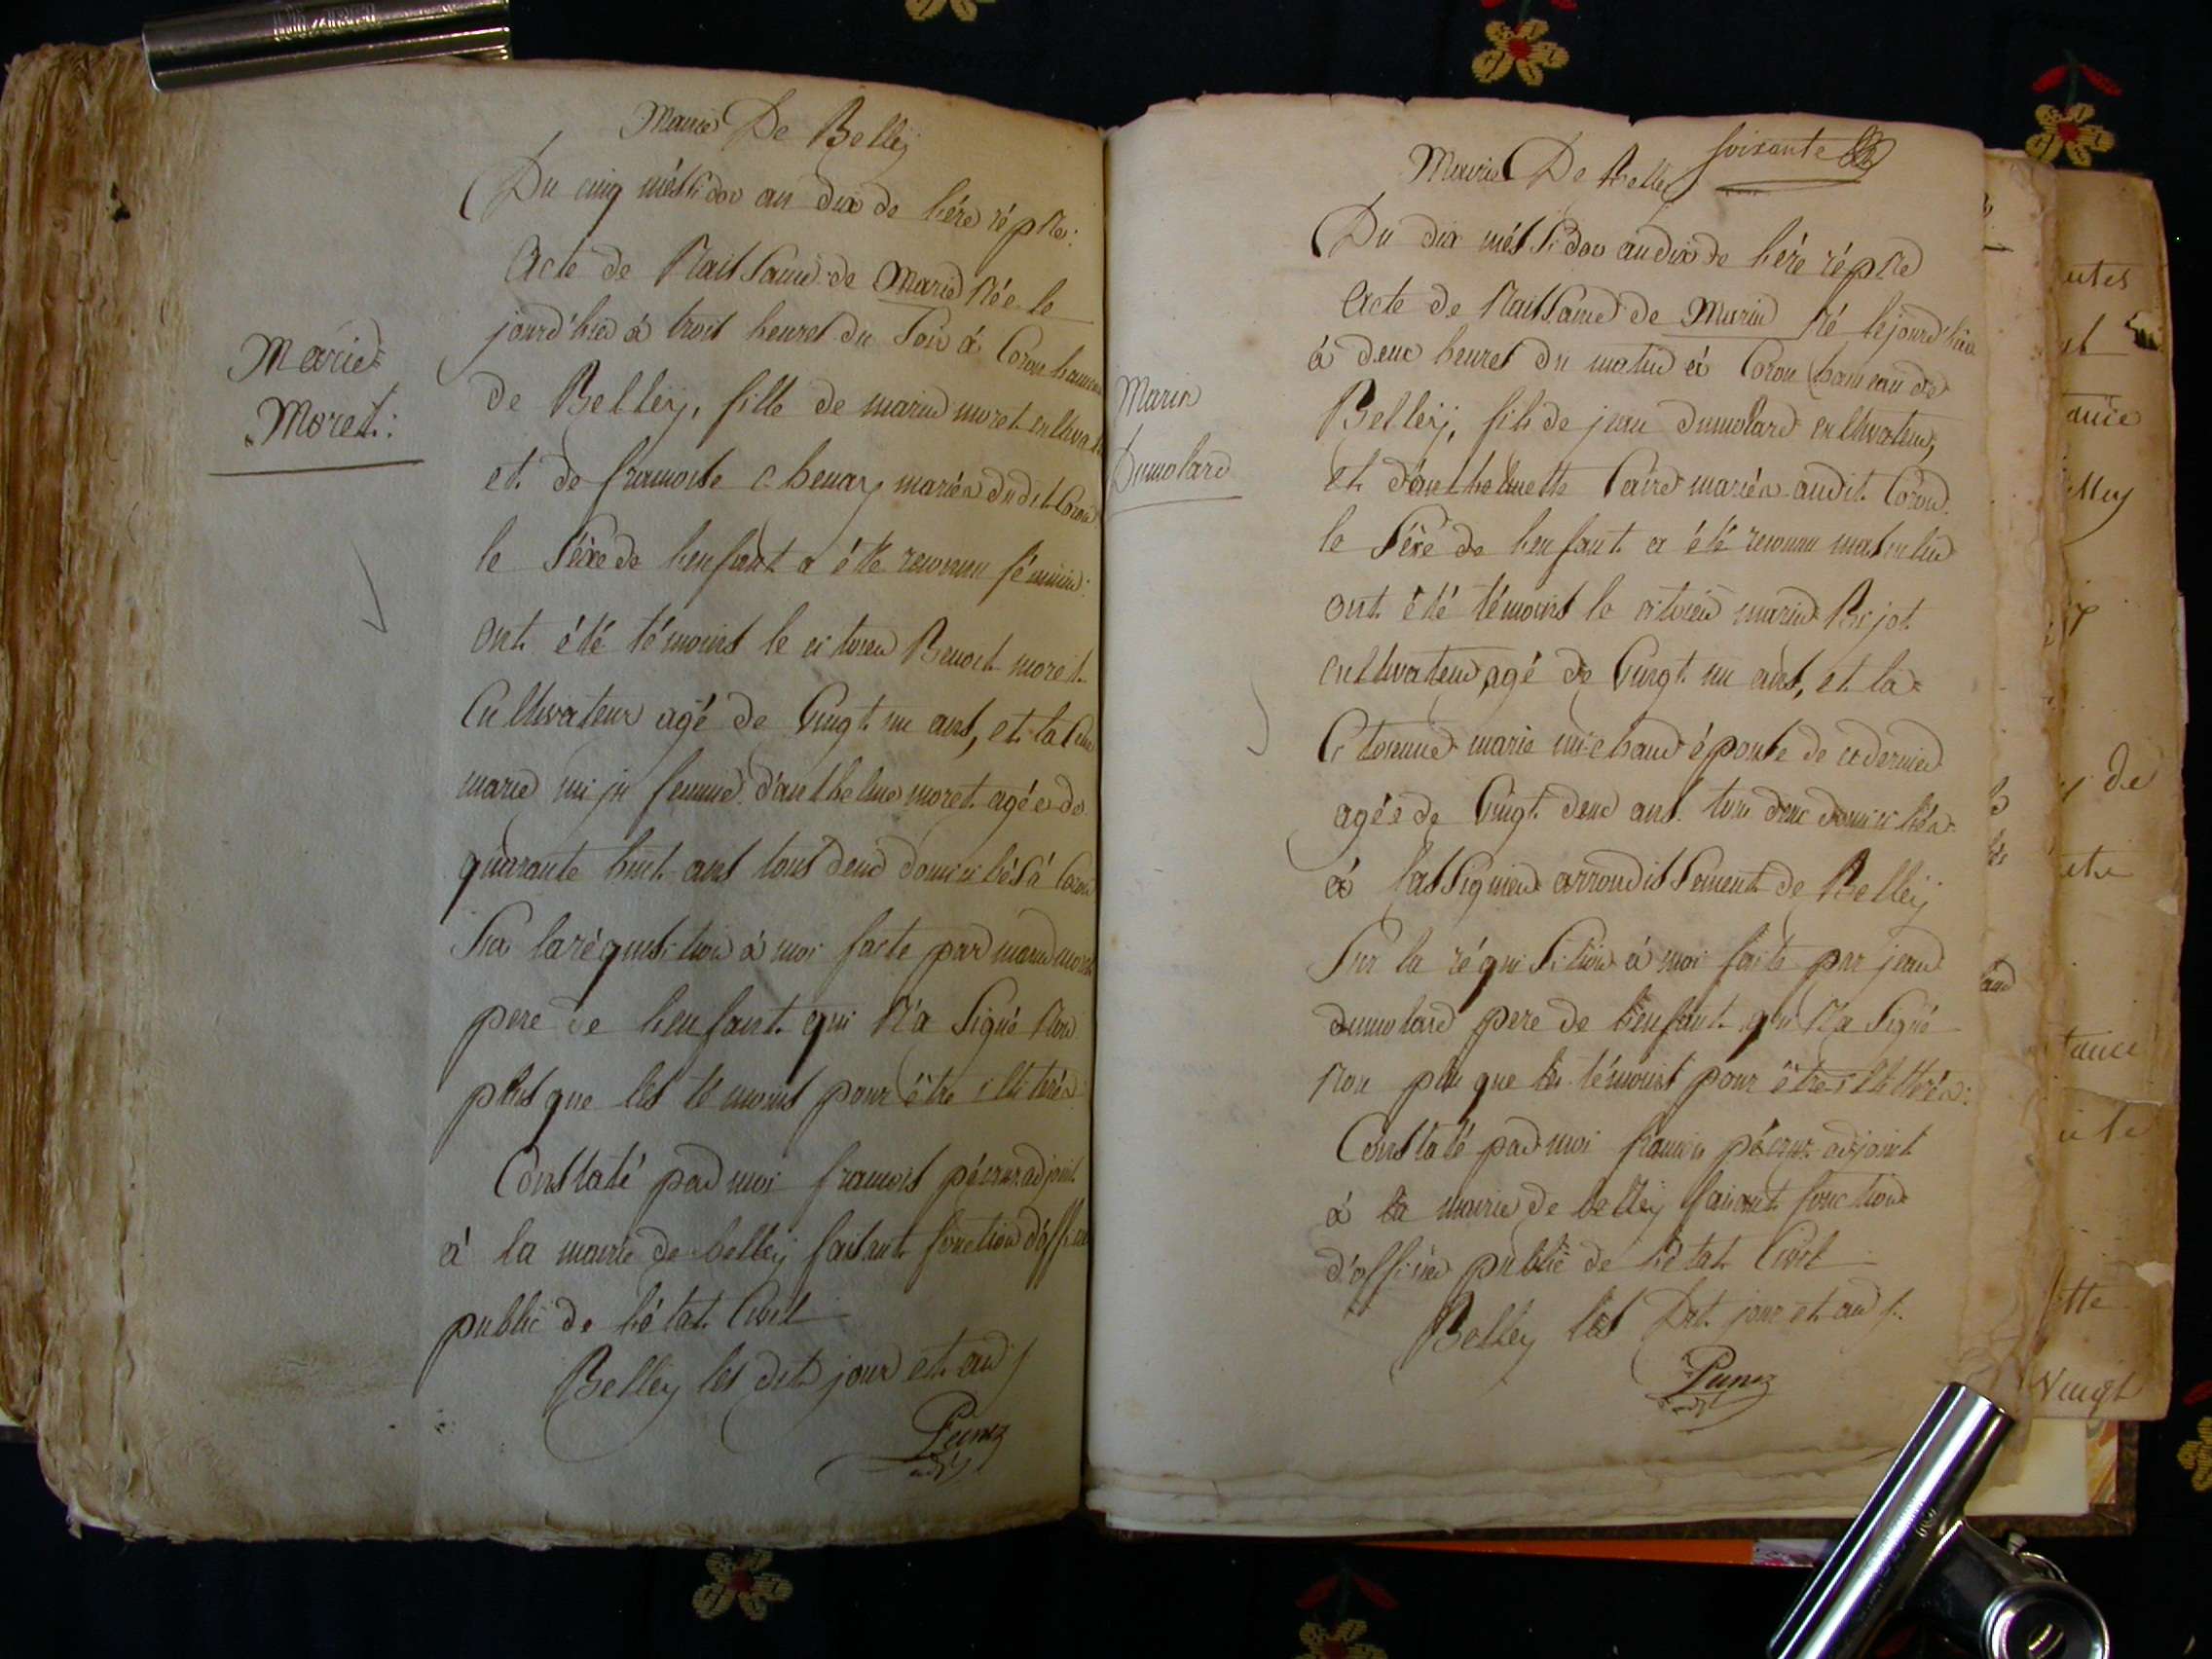 Mairie De Belleÿ
Du cinqméssidor an dix de l'ére répne:
Acte de Naissance de Marie Née le
jourd'hui à trois heures du Soir à Coron hameau
de Belleÿ, fille de marin moret cultivateur
et de francoise chenay mariés dudit Coron
le Séxe de l'enfant a été reconnu féminin:
ont été témoins le citoien Benoit moret
Cultivateur agé de Vingt un ans, et la Cne
marie femme d'anthelme moret agée de
quarante huit ans tous deux domiciliés à Coron
Sur la réquisition à moi faite par marin moret
pere de l'enfant qui N'a Signé Non
plus que les témoins pour être illitérés
Constaté par moi francois adjoint
à la mairie de belleÿ faisant fonction d'officier
public de l'état Civil
Belleÿ les dits jour et an
Marie
Moret:
Mairie De Belleÿ
soixante
Du dix méssidor an dix de l'ére répne
Acte de Naissance de Marin Né lejourd'hui
à deux heures du matin à Coron hameau de
Belleÿ, fils de jean dumolard cultivateur,
et d'anthelmette Caire mariés audit Coron.
le Séxe de l'enfant a été reconnu masculin
ont été témoins le citoien marin Bijot
cultivateur agé de Vingt un ans, et la
Citoienne marie michaud épouse de ce dernier
agée de Vingt deux ans tous deux domiciliés
à Massignieu arrondissement de Belleÿ
Sur la réquisition à moi faite par jean
dumolard pere de l'enfant qui N'a Signé
Non plus que les témoins pour être illittérés:
Constaté par moi francois adjoint
à la mairie de belleÿ faisant fonction
d'officier public de l'état Civil
Belleÿ les Dit jour et an
Marin
Dumolard
elley
de
tance
Vingt